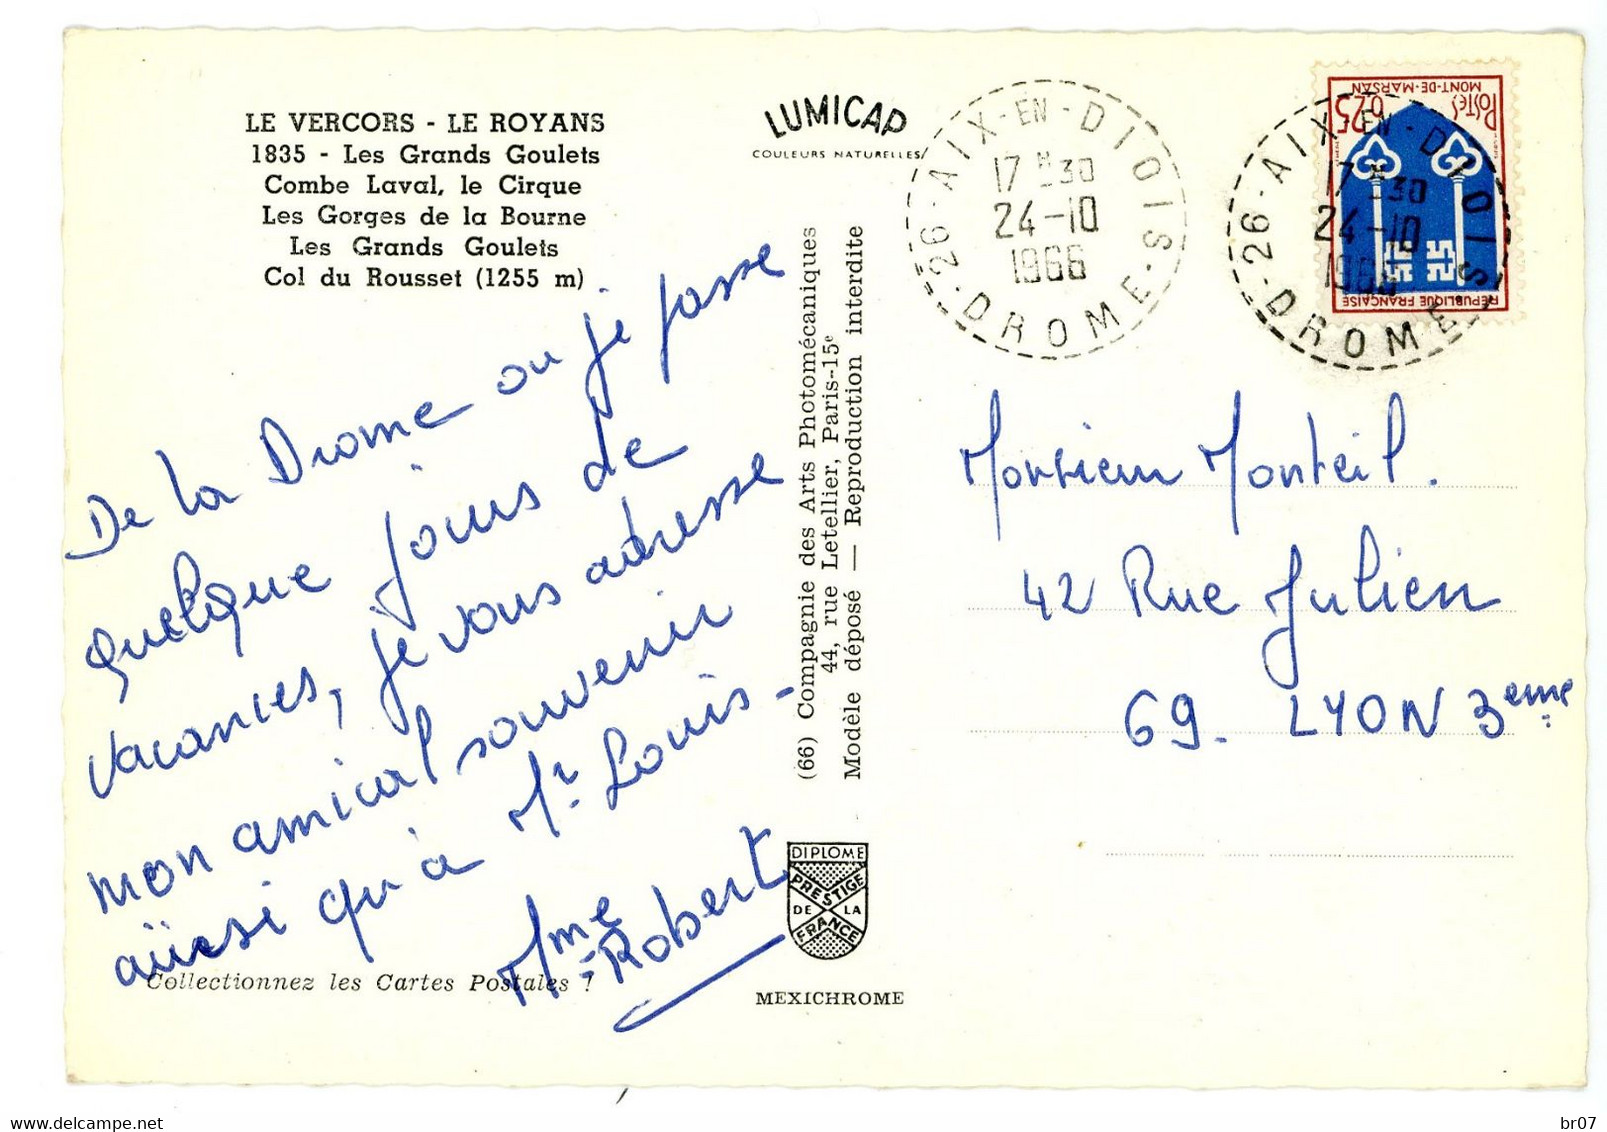 LE VERCORS - LE ROYANS
1835 - Les Grands Goulets
Combe Laval, le Cirque
Les Gorges de la Bourne
Les Grands Goulets
Col du Rousset (1255 m)
De la Drome ou je passe
quelque jours de
vacances, je vous adresse
mon amical souvenir
aussi qu'à Mr Louis -
Mme Robert
Collectionnez les Cartes Postales !
LUMICAP
COULEURS NATURELLES
(66) Compagnie des Arts Photomécaniques
44, rue Letellier, Paris-15e
Modèle déposé — Reproduction interdite
DIPLOME
PRESTIGE
DE LA
FRANCE
MEXICHROME
26 - AIX-EN-DIOIS - DROME
17 H 30
24-10
1966
26 - AIX-EN-DIOIS - DROME
17 H 30
24-10
1966
RÉPUBLIQUE FRANÇAISE
0,25
POSTES
MONT-DE-MARSAN
Monsieur Monteil.
42 Rue Julien
69. LYON 3eme
delcampe.net
br07